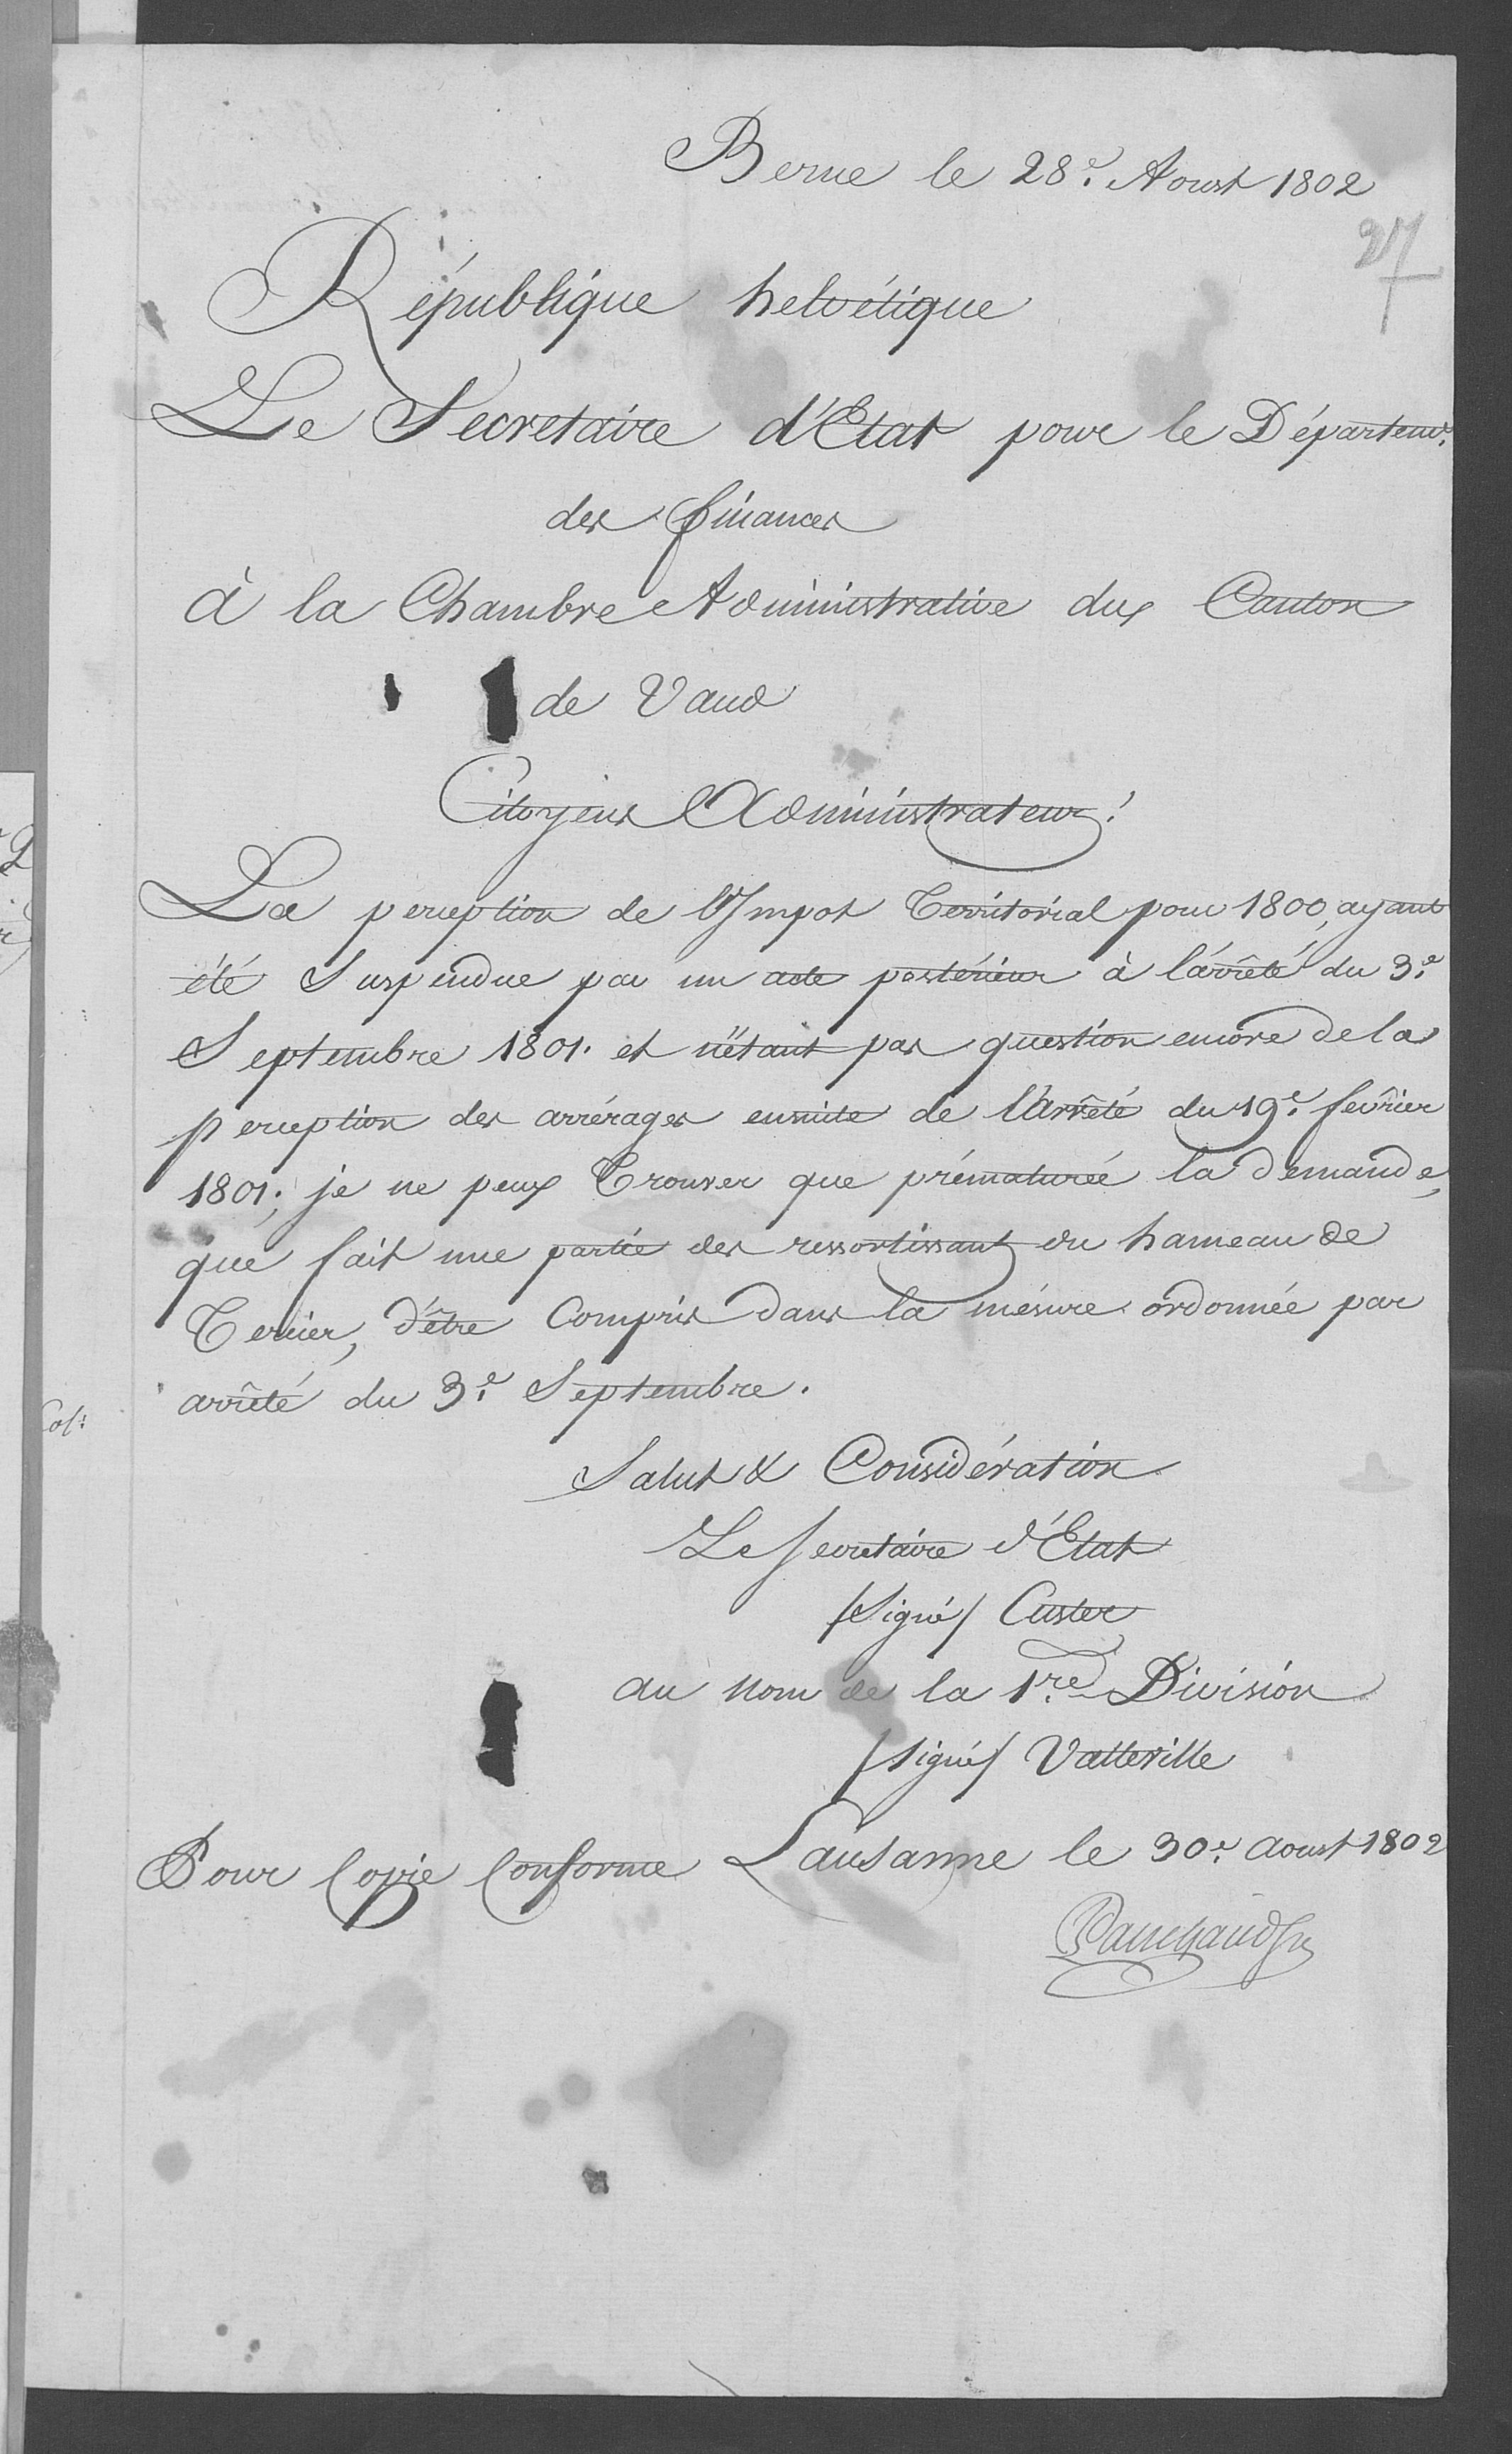 Berne le 28e. Aoust 1802
27
République helvétique
Le Secretaire d'Etat pour le Départemt.
des finances
à la Chambre Administrative du Canton
de Vaud
Citoyens Administrateurs!
La perception de l'Impot Territorial pour 1800, ayant
été Suspendue par un acte postérieur à l'arrêté du 3e.
Septembre 1801. et n'étant pas question encore de la
perception des arrérages ensuite de l'Arrêté du 19e. fevrier
1801; je ne peux Trouver que prématurée la demande,
que fait une partie des ressortissants du hameau de
Tercier, d'être Compris dans la mésure ordonnée par
arrêté du 3e. Septembre.
Salut & Considération
Le Secretaire d'Etat
/Signé/ Custer
au nom de la 1re. Division
/signé/ Vatteville
Pour Copie Conforme Lausanne le 30e. aoust 1802
Panchaud